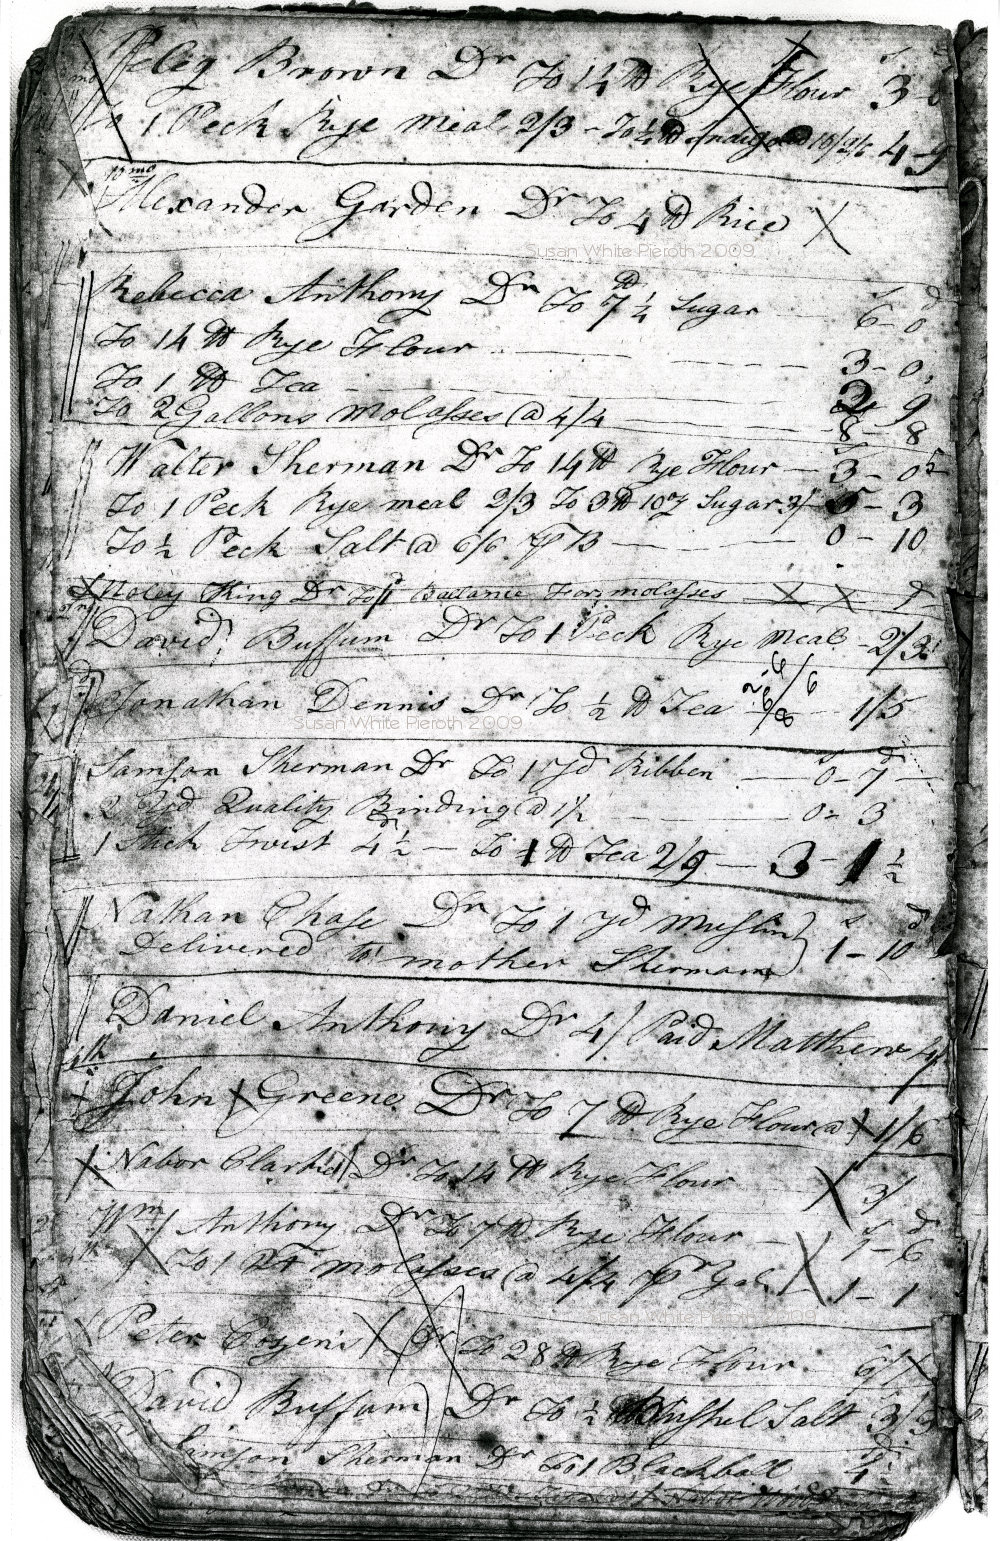 Peleg Brown Dr To 14 lb Rye Flour 3-0
To 1 Peck Rye meal 2/3 - To ¼ lb Indigo 4-9
10 mo
Alexander Garden Dr To 4 lb Rice X
Susan White Pieroth 2009
Rebecca Anthony Dr To 7 ¼ lb Sugar 6-0
To 14 lb Rye Flour 3-0
To 1 lb Tea 2 9
To 2 Gallons molasses @ 4/4 8-8
Walter Sherman Dr To 14 lb Rye Flour - 3-0
To 1 Peck Rye meal 2/3 To 3 lb 10 oz Sugar 5-3
To ½ Peck Salt @ 6/6 pr B 0-10
King Dr To Balance For molasses X X
David Buffum Dr To 1 Peck Rye Meal - 2/3
Jonathan Dennis Dr To ½ lb Tea 1/5
Susan White Pieroth 2009
Samson Sherman Dr To 1 yd Ribben 0-7
2 Yd Quality Binding @ 1½ 0-3
1 Stick Twist 4½ - To 1 lb Tea 2/9 - 3-1½
Nathan Chase Dr To 1 yd Muslin s d
Delivered to mother Sherman 1-10
Daniel Anthony Dr 4/ Paid Matthew 4/
John Greene Dr To 7 lb Rye Flour @ 1/6
Nabor Clarke Dr To 14 lb Rye Flour X 3/
Wm Anthony Dr To 7 lb Rye Flour - 1-6
To 1 Qt molasses @ 4/4 pr Gal 1-1
Susan White Pieroth 2009
Peter Cozens Dr To 28 lb Rye Flour 6/
David Buffum Dr To ½ Bushel Salt 3/3
Samson Sherman Dr To 1 Blackball